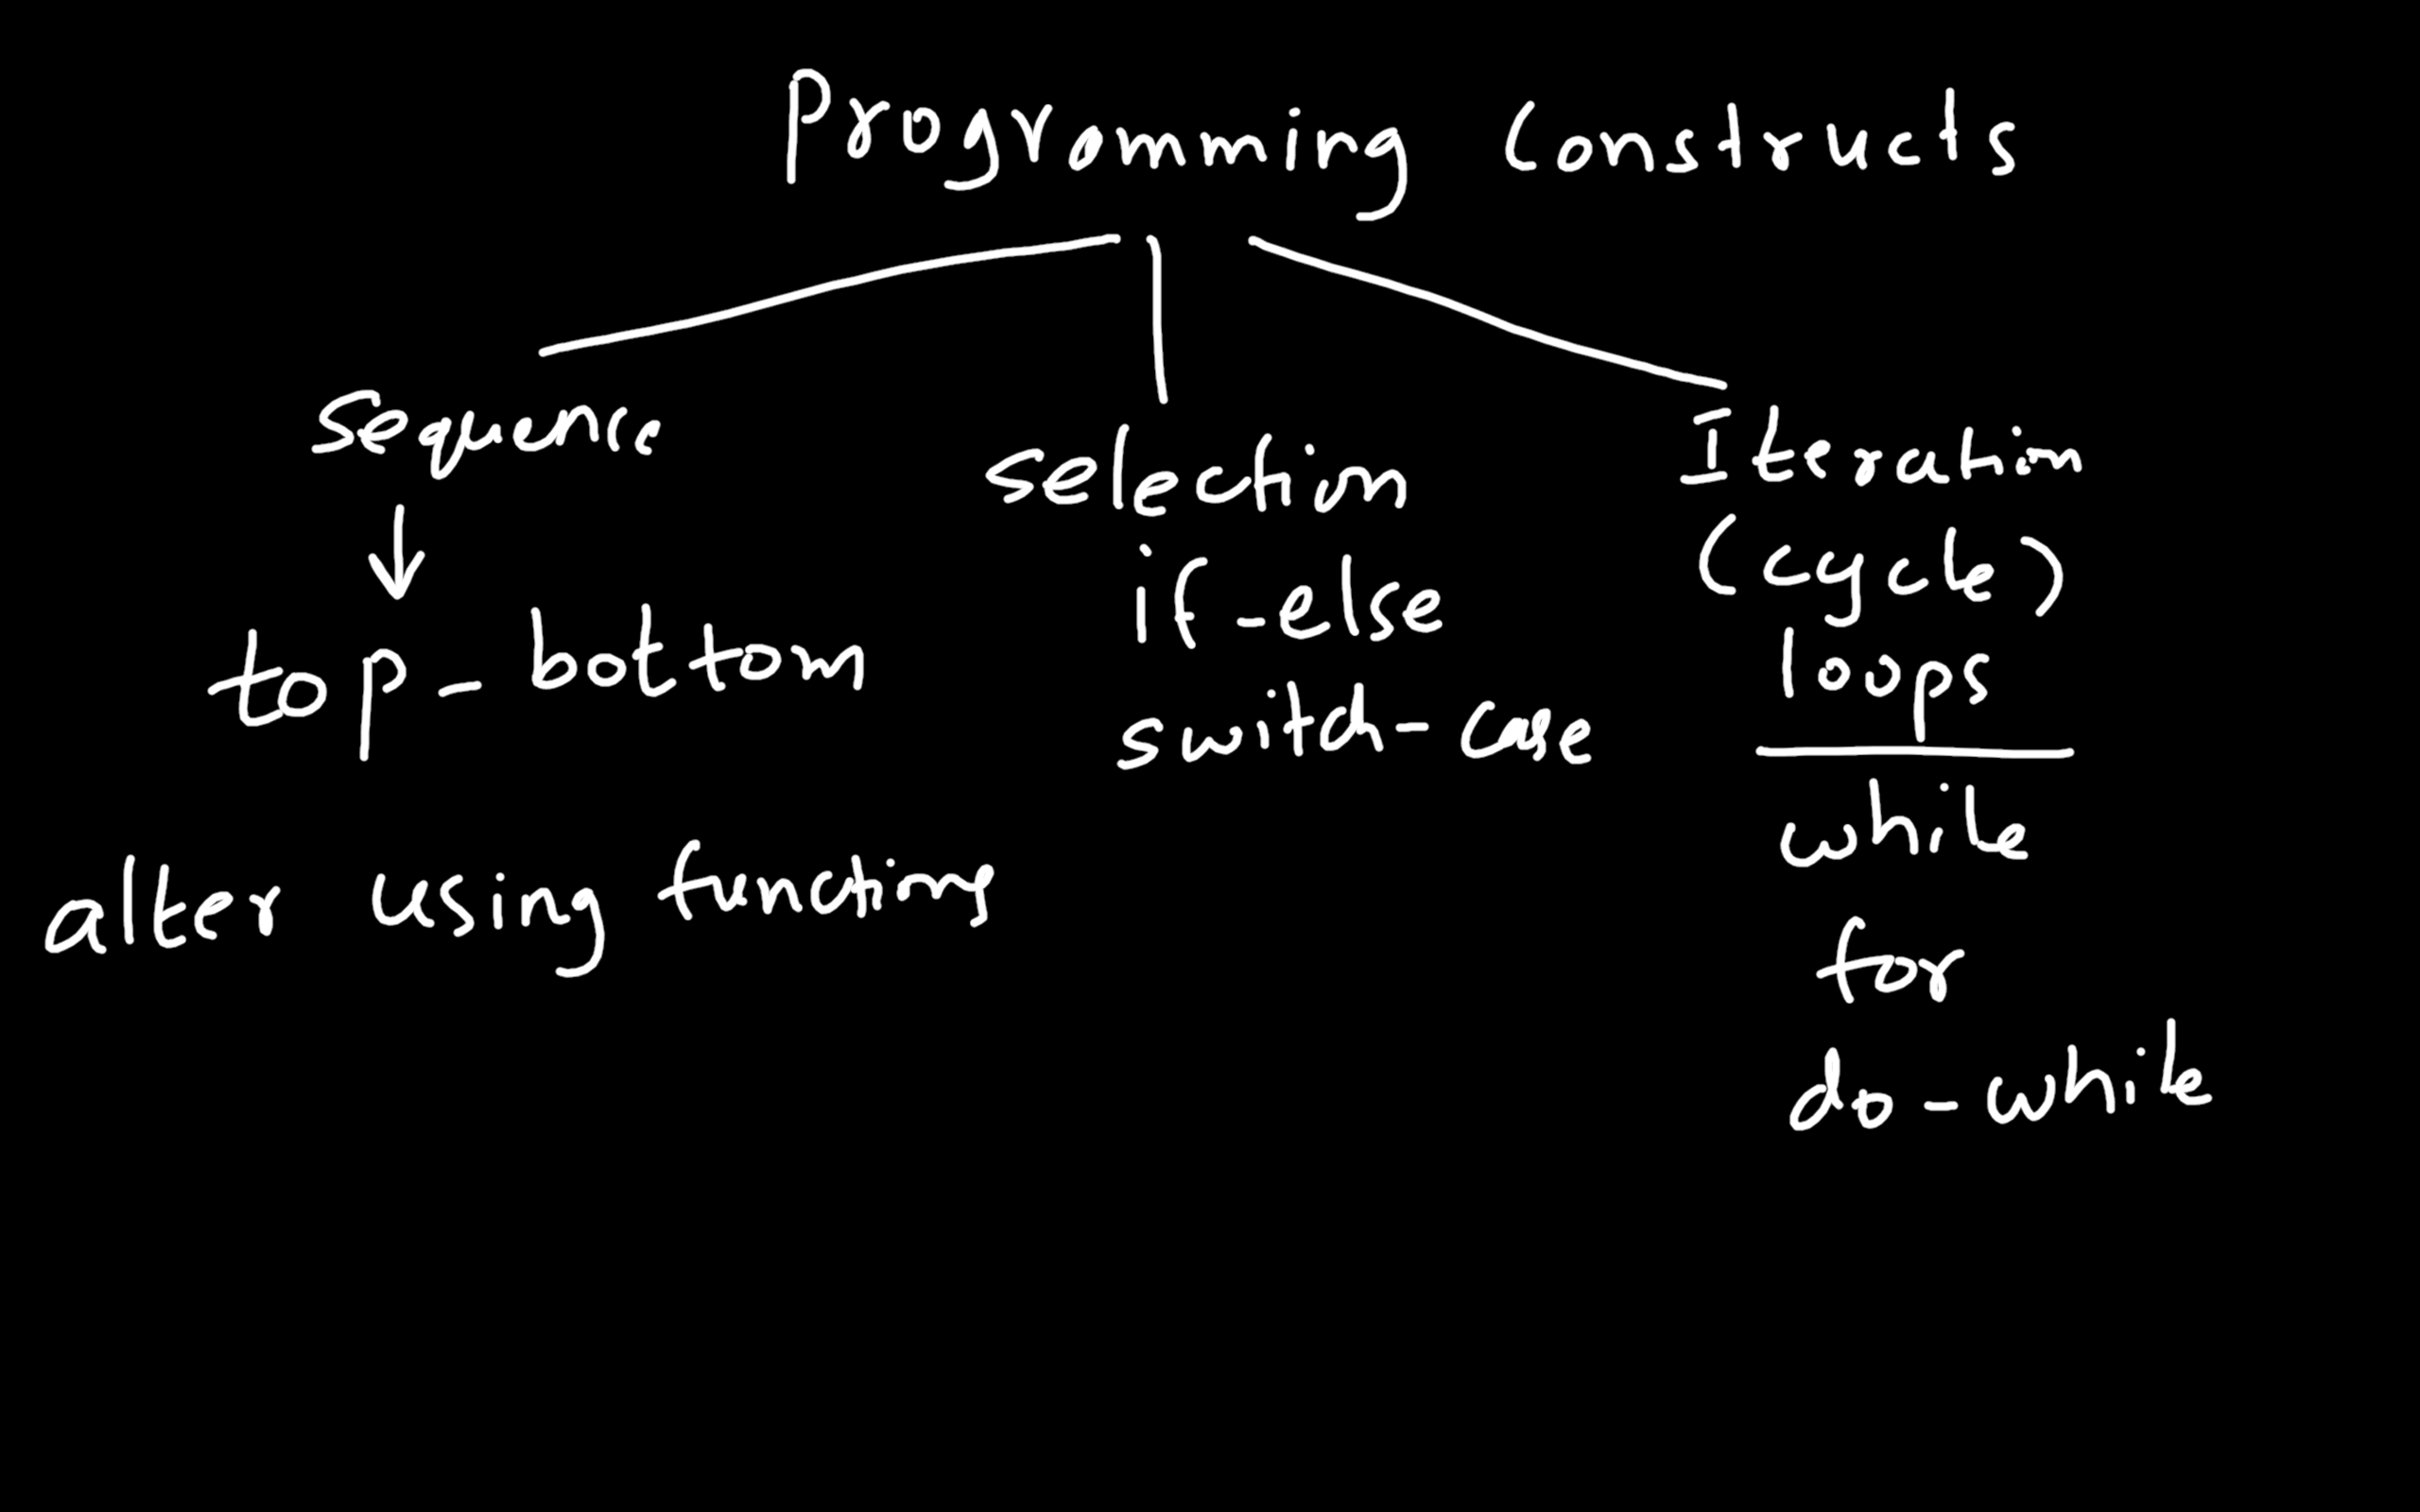 Programming Constructs
Sequence
top-bottom
alter using functions
selection
if-else
switch-case
Iteration
(cycle)
loops
while
for
do-while